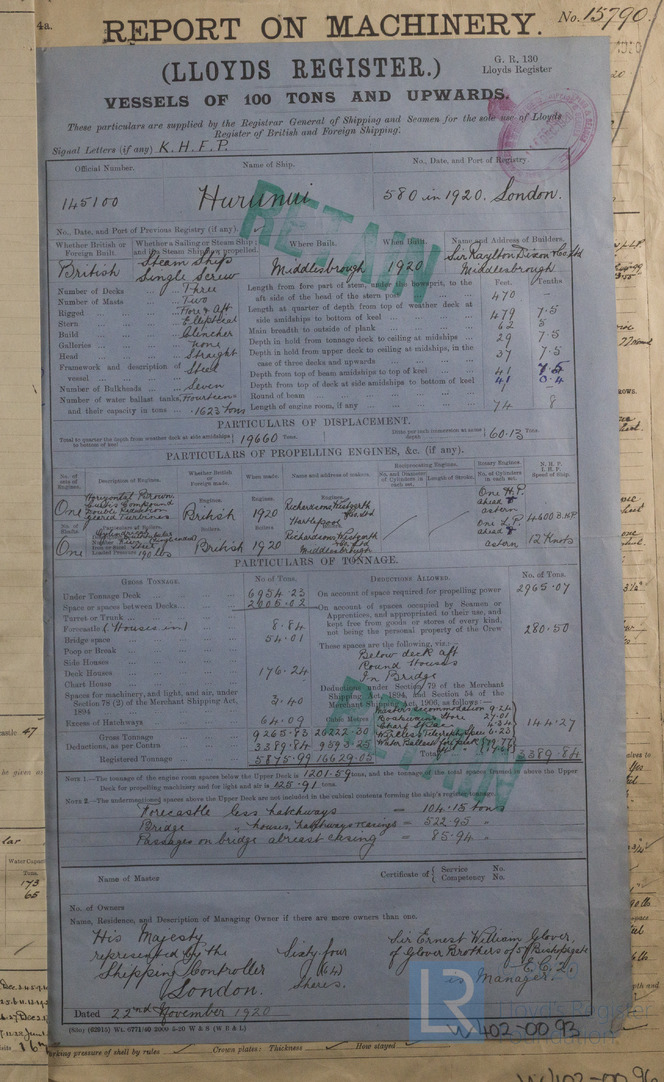 4a.
REPORT ON MACHINERY.
No. 15790.
(LLOYDS REGISTER.)
G. R. 130
Lloyds Register
VESSELS OF 100 TONS AND UPWARDS.
These particulars are supplied by the Registrar General of Shipping and Seamen for the sole use of Lloyds
Register of British and Foreign Shipping.
Signal Letters (if any) K.H.F.P.
Official Number. Name of Ship. No., Date, and Port of Registry.
145100 Hurunui 580 in 1920. London.
RETAIN
No., Date, and Port of Previous Registry (if any).
Whether British or Foreign Built. Whether a Sailing or Steam Ship; and if a Steam Ship, how propelled. Where Built. When Built. Name and Address of Builders.
British Steam Ship Single Screw Middlesbrough 1920 Sir Raylton Dixon & Co. Ltd Middlesbrough
Number of Decks Three
Number of Masts Two
Rigged Fore & Aft
Stern Elliptical
Build Clincher
Galleries None
Head Straight
Framework and description of vessel Steel
Number of Bulkheads Seven
Number of water ballast tanks, Fourteen
and their capacity in tons 1623 tons
Feet. Tenths
Length from fore part of stem, under the bowsprit, to the aft side of the head of the stern post 470 —
Length at quarter of depth from top of weather deck at side amidships to bottom of keel 479 7.5
Main breadth to outside of plank 62 5
Depth in hold from tonnage deck to ceiling at midships 29 7.5
Depth in hold from upper deck to ceiling at midships, in the case of three decks and upwards 37 7.5
Depth from top of beam amidships to top of keel 41 7.5
Depth from top of deck at side amidships to bottom of keel 41 0.4
Round of beam
Length of engine room, if any 74 8
PARTICULARS OF DISPLACEMENT.
Total to quarter the depth from weather deck at side amidships to bottom of keel 19660 Tons. Ditto per inch immersion at same depth 60.13 Tons
PARTICULARS OF PROPELLING ENGINES, &c. (if any).
No. of sets of Engines. Description of Engines. Whether British or Foreign made. When made. Name and address of makers. Reciprocating Engines. Rotary Engines. N. H. P. I. H. P. Speed of ship.
No. and Diameter of Cylinders in each set. Length of Stroke. No. of Cylinders in each set.
One Horizontal Brown Curtis Compound Double Reduction Geared Turbines Engines. British Engines. 1920 Engines. Richardsons, Westgarth & Co. Ltd Hartlepool One H.P. ahead & astern One L.P. ahead & astern 4600 S.H.P.
One Steel 190 lbs Boilers. British Boilers. 1920 Boilers. Richardsons, Westgarth & Co. Ltd Middlesbrough 12 Knots
PARTICULARS OF TONNAGE.
GROSS TONNAGE. No. of Tons. DEDUCTIONS ALLOWED. No. of Tons.
Under Tonnage Deck 6954.23
Space or spaces between Decks 2005.02
Turret or Trunk
Forecastle (Houses in) 8.84
Bridge space 54.01
Poop or Break
Side Houses
Deck Houses 176.24
Chart House
Spaces for machinery, and light, and air, under Section 78 (2) of the Merchant Shipping Act, 1894 3.40
Excess of Hatchways 64.09
Gross Tonnage 9265.83 26222.30
Deductions, as per Contra 3389.84 9593.25
Registered Tonnage 5875.99 16629.05
On account of space required for propelling power 2965.07
On account of spaces occupied by Seamen or Apprentices, and appropriated to their use, and kept free from goods or stores of every kind, not being the personal property of the Crew 280.50
These spaces are the following, viz.:—
Below deck aft
Round Houses
In Bridge
Deductions under Section 79 of the Merchant Shipping Act, 1894, and Section 54 of the Merchant Shipping Act, 1906, as follows:—
Master's accommodation 9.24
Boatswains Store 27.01
Chart Space
Wireless Telegraph Space 6.23
Water Ballast 144.27
Total 3389.84
RETAIN
NOTE 1.—The tonnage of the engine room spaces below the Upper Deck is 1201.59 tons, and the tonnage of the total spaces framed in above the Upper
Deck for propelling machinery and for light and air is 125.91 tons.
NOTE 2.—The undermentioned spaces above the Upper Deck are not included in the cubical contents forming the ship's register tonnage.
Forecastle less hatchways = 104.15 tons
Bridge " houses, hatchways & casings = 522.95 "
Passages on bridge abreast casing = 85.94 "
Name of Master Certificate of { Service No.
Competency No.
No. of Owners
Name, Residence, and Description of Managing Owner if there are more owners than one.
His Majesty
represented by the
Shipping Controller
London.
Sixty four
(64)
Shares.
Sir Ernest William Glover,
of Glover Brothers of 57 Bishopsgate
E.C.2.
is Manager.
Dated 22nd November 1920
(8569) (62915) Wt. 6771/40 2000 5-20 W & S (W. E. & L.)
W402-0093
LR
Lloyd's Register
Foundation
Working pressure of shell by rules Crown plates: Thickness How stayed
W402-0096
Water Capacity
Tons.
173
65